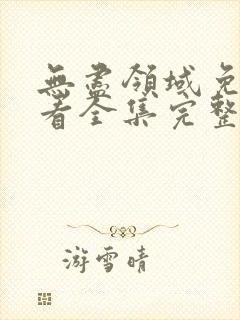 無盡領域免
看全集完整
游雪晴